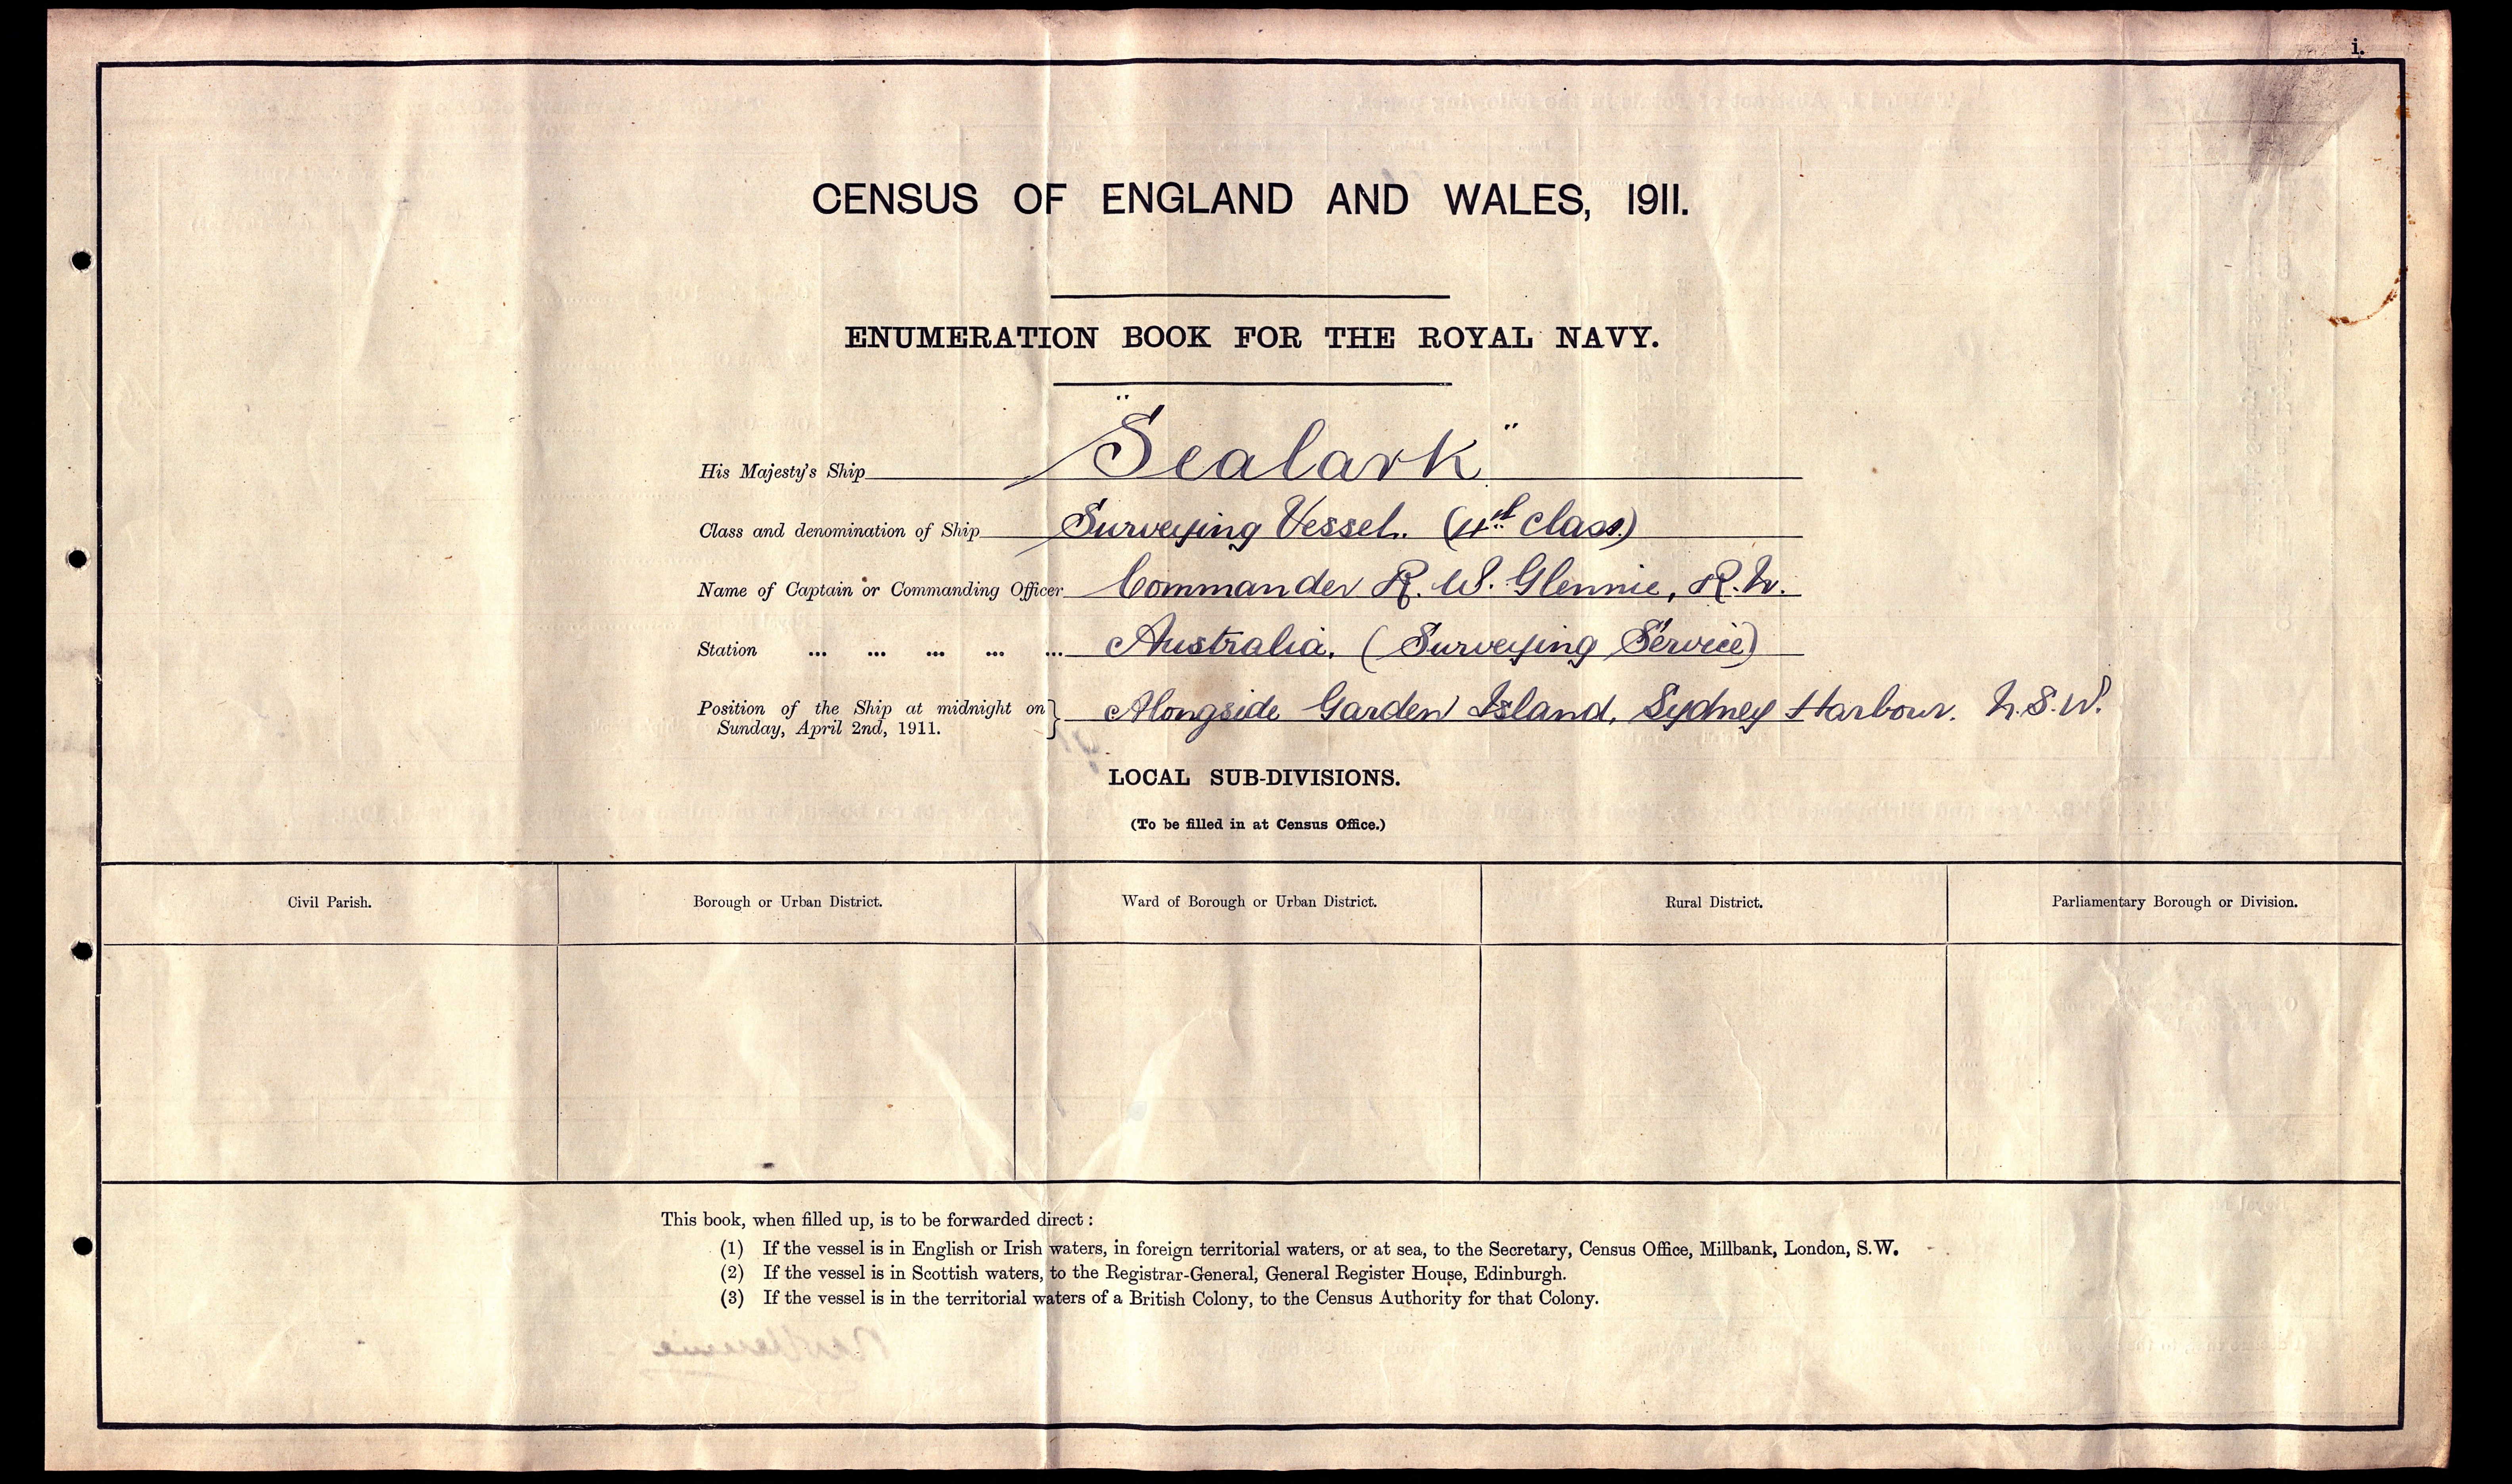 i.
CENSUS OF ENGLAND AND WALES, 1911.
ENUMERATION BOOK FOR THE ROYAL NAVY.
His Majesty's Ship "Sealark"
Class and denomination of Ship Surveying Vessel. ( class)
Name of Captain or Commanding Officer Commander R. W. Glennie, R.N.
Station ... ... ... ... ... Australia. (Surveying Service)
Position of the Ship at midnight on Sunday, April 2nd, 1911. } Alongside Garden Island, Sydney Harbour. N.S.W.
LOCAL SUB-DIVISIONS.
(To be filled in at Census Office.)
Civil Parish. Borough or Urban District. Ward of Borough or Urban District. Rural District. Parliamentary Borough or Division.
This book, when filled up, is to be forwarded direct :
(1) If the vessel is in English or Irish waters, in foreign territorial waters, or at sea, to the Secretary, Census Office, Millbank, London, S.W.
(2) If the vessel is in Scottish waters, to the Registrar-General, General Register House, Edinburgh.
(3) If the vessel is in the territorial waters of a British Colony, to the Census Authority for that Colony.